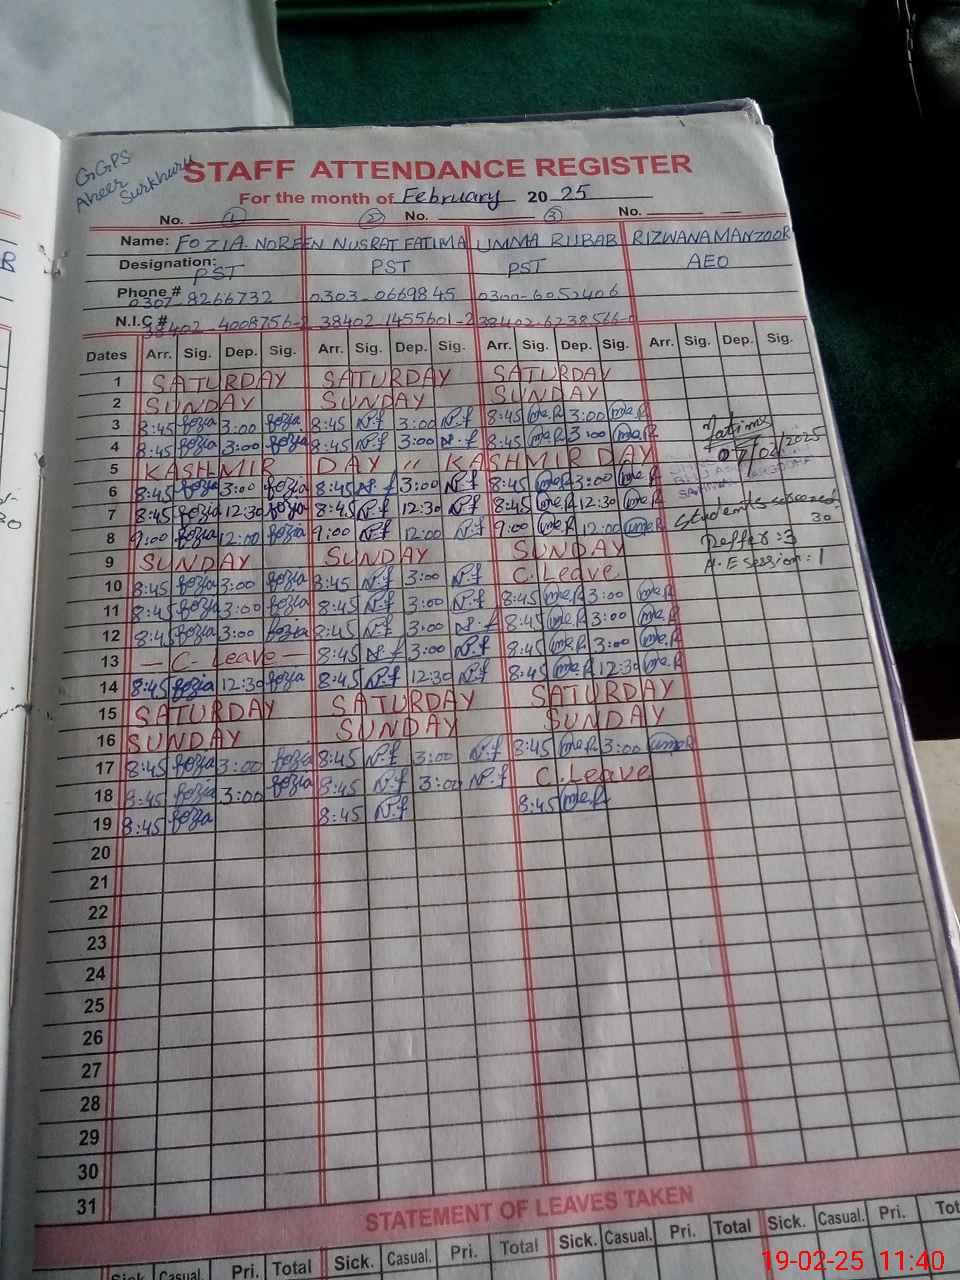 GGPS
Aheer Surkhuru
STAFF ATTENDANCE REGISTER
For the month of February 2025
No. 1 2 No. 3 No.
Name: FOZIA NOREEN NUSRAT FATIMA UMMA RUBAB RIZWANA MANZOOR
Designation: PST PST PST AEO
Phone # 0307-8266732 0303-0669845 0300-6052406
N.I.C # 38402-4008756- 38402-1455601-2 38402-6238566-
Dates Arr. Sig. Dep. Sig. Arr. Sig. Dep. Sig. Arr. Sig. Dep. Sig. Arr. Sig. Dep. Sig.
1 SATURDAY SATURDAY SATURDAY
2 SUNDAY SUNDAY SUNDAY
3 8:45 fozia 3:00 fozia 8:45 N.f 3:00 N.f 8:45 3:00
4 8:45 fozia 3:00 fozia 8:45 N.f 3:00 N.f 8:45 3:00
5 KASHMIR DAY " KASHMIR DAY
6 8:45 fozia 3:00 fozia 8:45 N.f 3:00 N.f 8:45 3:00
7 8:45 fozia 12:30 fozia 8:45 N.f 12:30 N.f 8:45 12:30
8 9:00 fozia 12:00 fozia 9:00 N.f 12:00 N.f 9:00 12:00
9 SUNDAY SUNDAY SUNDAY
10 8:45 fozia 3:00 fozia 8:45 N.f 3:00 N.f C.Leave
11 8:45 fozia 3:00 fozia 8:45 N.f 3:00 N.f 8:45 3:00
12 8:45 fozia 3:00 fozia 8:45 N.f 3:00 N.f 8:45 3:00
13 — C- Leave — 8:45 N.f 3:00 N.f 8:45 3:00
14 8:45 fozia 12:30 fozia 8:45 N.f 12:30 N.f 8:45 12:30
15 SATURDAY SATURDAY SATURDAY
16 SUNDAY SUNDAY SUNDAY
17 8:45 fozia 3:00 fozia 8:45 N.f 3:00 N.f 8:45 3:00
18 8:45 fozia 3:00 fozia 8:45 N.f 3:00 N.f C.Leave
19 8:45 fozia 8:45 N.f 8:45
20
21
22
23
24
25
26
27
28
29
30
31
fatima
07/02/2025
Students
30
: 3
Session: 1
STATEMENT OF LEAVES TAKEN
Sick. Casual. Pri. Total Sick. Casual. Pri. Total Sick. Casual. Pri. Total Sick. Casual. Pri. Tot
19-02-25 11:40